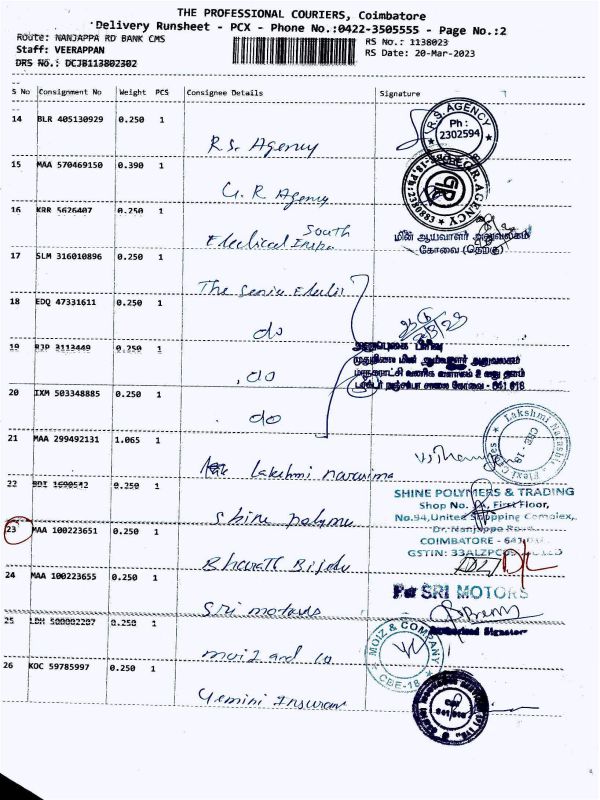 THE PROFESSIONAL COURIERS, Coimbatore
Delivery Runsheet - PCX - Phone No.:0422-3505555 - Page No.:2
Route: NANJAPPA RD BANK CMS
RS No.: 1138023
Staff: VEERAPPAN
RS Date: 20-Mar-2023
DRS No.: DCJB113802302
S No Consignment No Weight PCS Consignee Details Signature
14 BLR 405130929 0.250 1
R.S. Agency
R.S. AGENCY
Ph :
2302594
15 MAA 570469150 0.390 1
G. R Agency
G.R. AGENCY
16 KRR 5626407 0.250 1
South
Electrical Inspe
மின் ஆய்வாளர் அலுவலகம்
கோவை (தெற்கு)
17 SLM 316010896 0.250 1
The Senior Electri
18 EDQ 47331611 0.250 1
do
19 RJP 3113449 0.250 1
do
20 IXM 503348885 0.250 1
do
641 018
21 MAA 299492131 1.065 1
Lakshmi narasima
CBE - 18
22 BDI 1690542 0.250 1
Shine polyme
SHINE POLYMERS & TRADING
Shop No. First Floor,
No.94, United Shopping Complex,
Dr. Nanjappa Road
COIMBATORE - 641
23 MAA 100223651 0.250 1
Bharath Bijolu
D/L
24 MAA 100223655 0.250 1
Sri motors
For SRI MOTORS
Authorised Signatory
25 LDH 500002287 0.250 1
moiz and co
MOIZ & COMPANY
CBE-18
26 KOC 59785997 0.250 1
Gemini Insuran